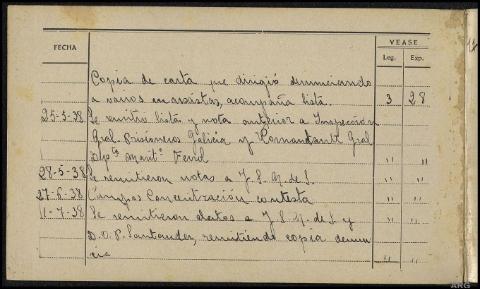 FECHA
VEASE
Leg. Exp.
Copia de carta que dirigió denunciando
a varios marxistas, acompaña lista. 3 28
25-5-38 Se remitió lista y nota anterior a Inspección
Gral. Prisioneros Galicia y Comandante Gral
Dpto Marítº Ferrol " "
28-5-38 Se remitieron notas a J.S.N. de S. " "
27-6-38 Campos Concentración contesta " "
11-7-38 Se remitieron datos a J.S.N. de S. y
D.O.P. Santander, remitiendo copia denun
cia " "
ARG